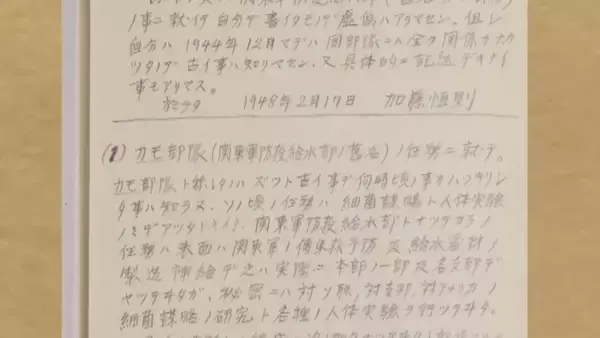 ノ事ニ就イテ自分デ書イタモノデ虚偽ハアリマセン。但シ
自分ハ1944年12月マデハ同部隊ニハ全ク関係ガナカ
ツタノデ古イ事ハ知リマセン。又具体的ニ記述デキナイ
事モアリマス。
於チタ 1948年2月17日 加藤恒則
(1) カモ部隊(関東軍防疫給水部ノ舊名)ノ任務ニ就テ。
カモ部隊ト称シタノハズツト古イ事デ何時頃ノ事カハツキリシ
タ事ハ知ラヌ。ソノ頃ノ任務ハ細菌謀略ト人体実験
ノミデアツタトキイタ。関東軍防疫給水部トナツテカラノ
任務ハ表面ハ関東軍ノ傳染病予防及給水器材ノ
製造補給デ之ハ実際ニ本部ノ一部及各支部デ
ヤツテヰタガ、秘密ニハ対ソ聯、対支那、対アメリカノ
細菌謀略ノ研究ト各種ノ人体実験ヲ行ツテヰタ。